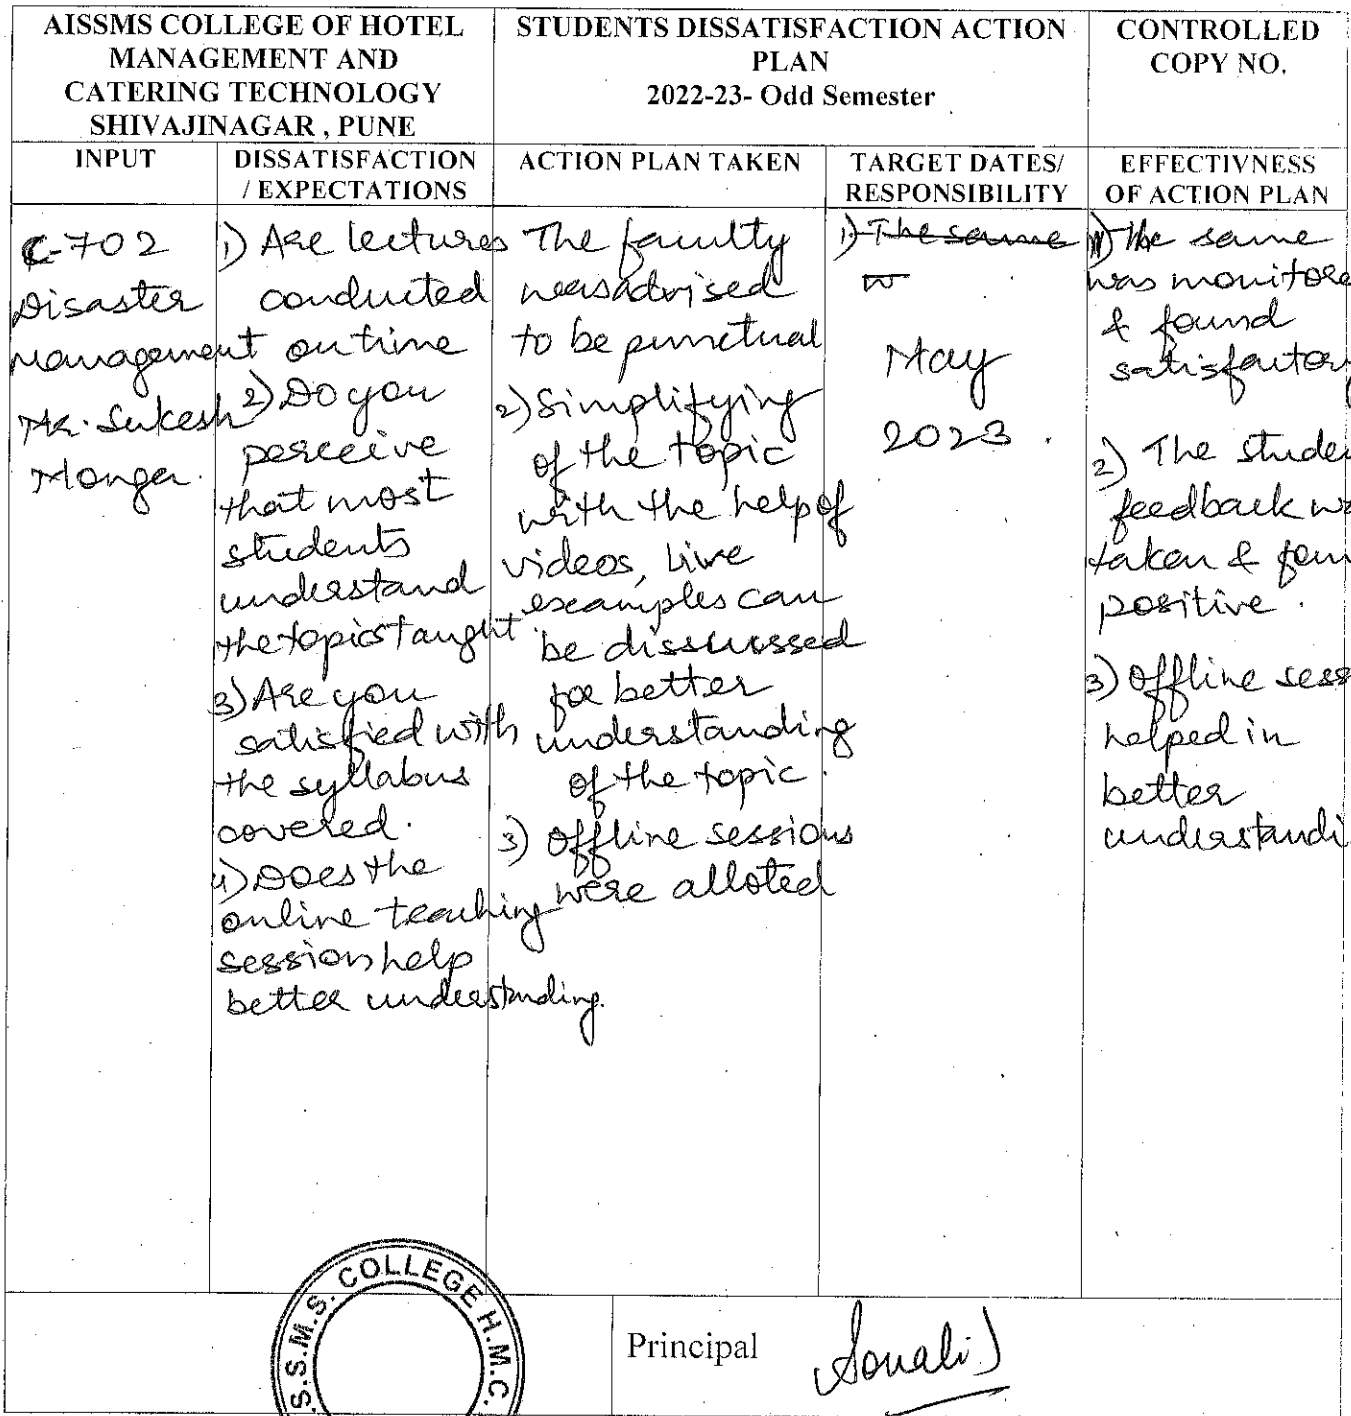 AISSMS COLLEGE OF HOTEL
MANAGEMENT AND
CATERING TECHNOLOGY
SHIVAJINAGAR , PUNE
STUDENTS DISSATISFACTION ACTION
PLAN
2022-23- Odd Semester
CONTROLLED
COPY NO.
INPUT
DISSATISFACTION
/ EXPECTATIONS
ACTION PLAN TAKEN
TARGET DATES/
RESPONSIBILITY
EFFECTIVNESS
OF ACTION PLAN
C-702
Disaster
Management
Mr. Sukesh
Monger.
1) Are lectures
conducted
on time
2) Do you
perceive
that most
students
understand
the topics taught.
3) Are you
satisfied with
the syllabus
covered.
4) Does the
online teaching
session help
better understanding.
The faculty
was advised
to be punctual
2) Simplifying
of the topic
with the help of
videos, live
examples can
be disscussed
for better
understanding
of the topic.
3) Offline sessions
were alloted
1) The same
May
2023.
1) The same
was monitore
& found
satisfactor
2) The studen
feedback wa
taken & foun
positive.
3) Offline sess
helped in
better
understandi
S.S.M.S. COLLEGE H.M.C.
Principal
Sonali J